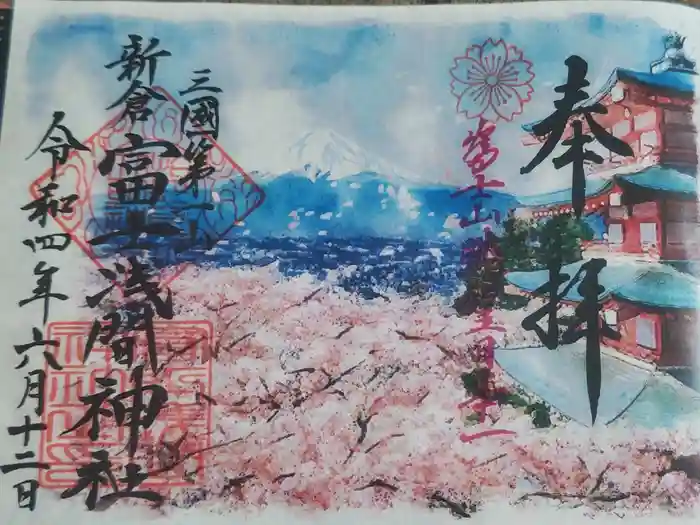 奉拝
三國第一山
新倉富士浅間神社
令和四年六月十二日